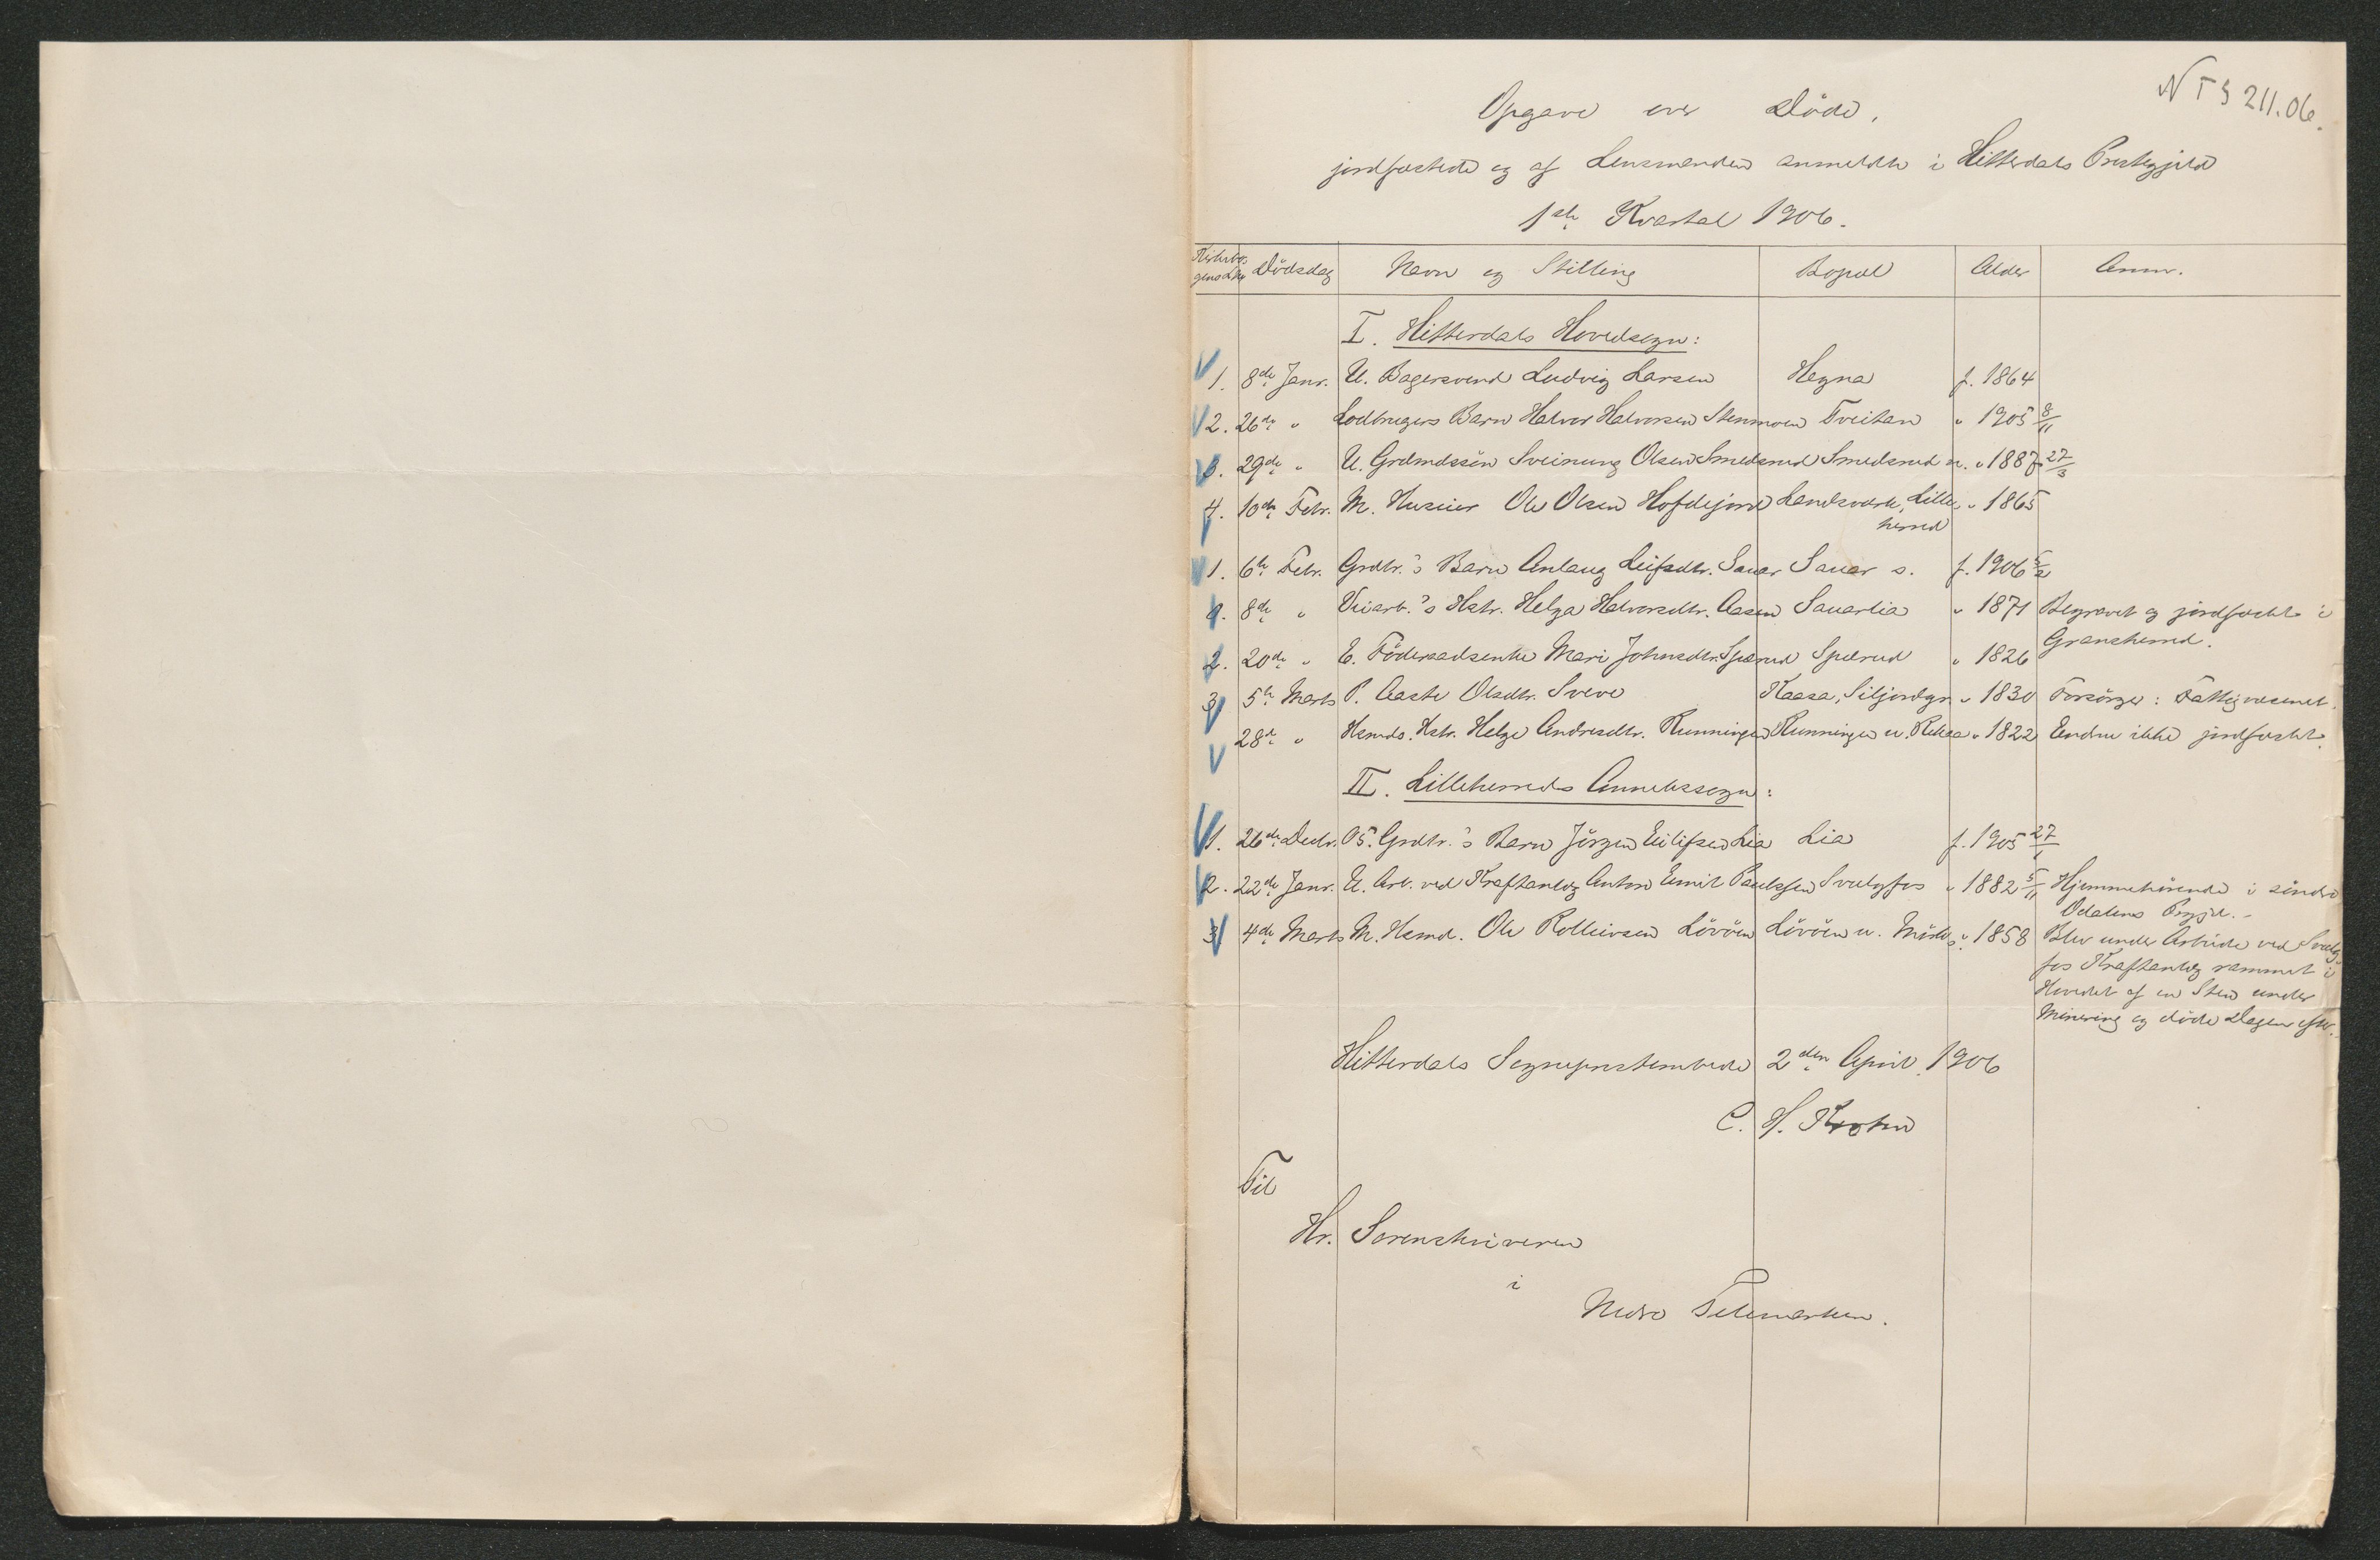 NTS 211.06.
Opgave over Døde,
jordfæstede og af Lensmanden anmeldte i Hitterdals Prestegjeld
1ste Kvartal 1906.
Kirkebo- Dödsdag Navn og Stilling Bopæl Alder Anm.
gens Lnr
I. Hitterdals Hovedsogn:
1. 8de Janr. U. Bagersvend Ludvig Larsen Hegna f. 1864
2. 26de " Lodbrugers Barn Halvor Halvorsen Stenmoen Tveitan " 1905 8/11
3. 29de " U. Grdmdssön Sveinung Olsen Smedsrud Smedsrud n. " 1887 27/3
4. 10de Febr. M. Huseier Ole Olsen Hofdejord Landsverk, Lille- " 1865
herred
1. 6te Febr. Grdbr.'s Barn Anlaug Leifsdtr. Sauar Sauar s. f. 1906 5/2
8de " Veiarb.'s Hstr. Helga Halvorsdtr. Aasen Sauarlia " 1871 Begravet og jordfæstet i
Gransherred.
2. 20de " E. Föderaadsenke Mari Johnsdtr. Spærud Spærud " 1826
3. 5te Marts P. Aaste Olsdtr. Sveve Kaasa, Siljordgr. " 1830 Forsörger: Fattigvæsenet.
28de " Hsmds. Hstr. Helge Andresdtr. Runningen Runningen u. Rekaa " 1822 Endnu ikke jordfæstet.
II. Lilleherreds Annekssogn:
1. 26de Decbr. 05. Grdbr.'s Barn Jörgen Eilifsen Lia Lia f. 1905 27/1
2. 22de Janr. U. Arb. ved Kraftanlæg Anton Emil Paulsen Svælgfos " 1882 5/11 Hjemmehörende i söndre
Odalens Prgjd.-
3. 4de Marts M. Hsmd. Ole Rolleivsen Lövöen Lövöen u. " 1858 Blev under Arbeide ved Svælg-
fos Kraftanlæg rammet i
Hovedet af en Sten under
Minering og döde Dagen efter.
Hitterdals Sogneprestembede 2den April 1906
C. H. Krohn
Til
Hr. Sorenskriveren
i
Nedre Telemarken.